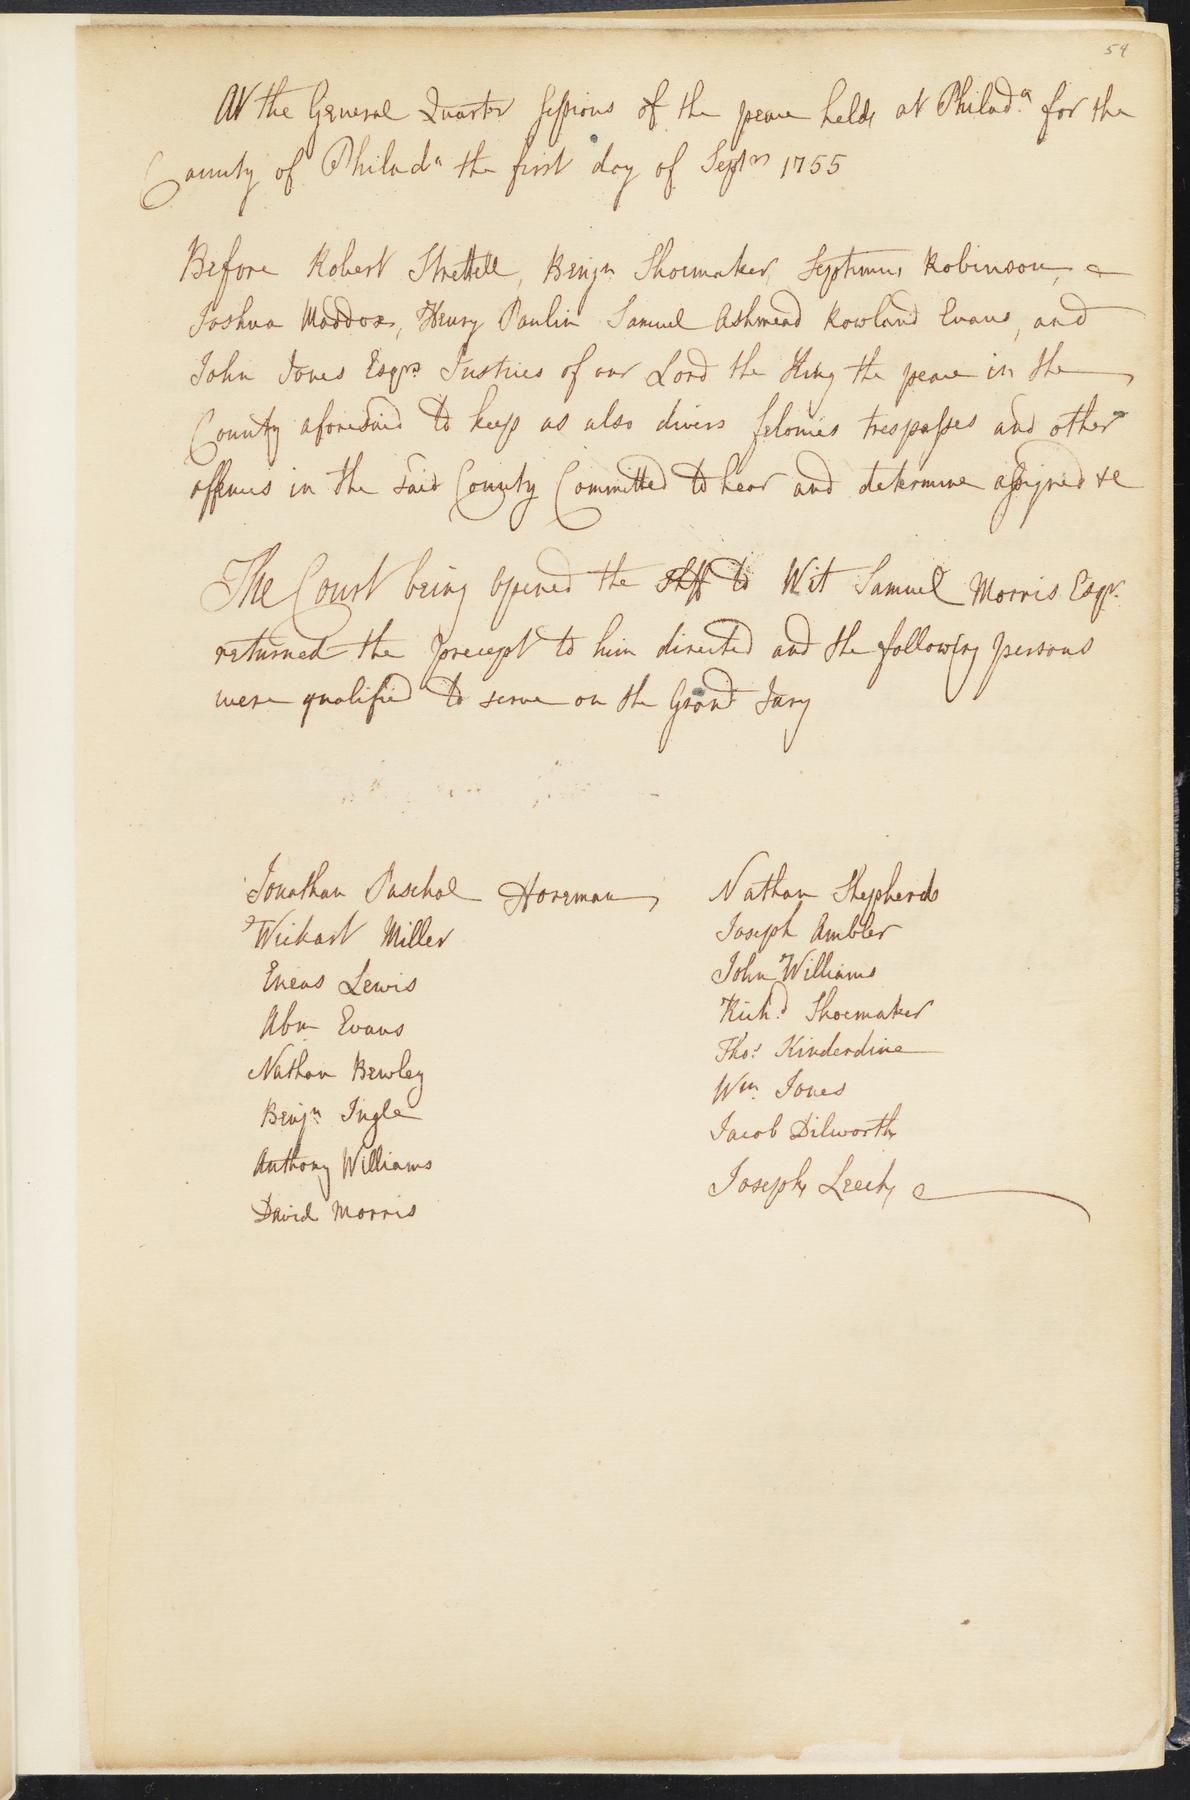 54
At the General Quarter Sessions of the peace held at Philad.a for the
County of Philada the first day of Septm 1755
Before Robert Strettell, Benjn Shoemaker, Septimus Robinson,
Joshua Maddox, Henry Paulin Samuel Ashmead Rowland Evans, and
John Jones Esqrs Justices of our Lord the King the peace in the
County aforesaid to keep as also divers felonies trespasses and other
offences in the said County Committed to hear and determine assigned &c
The Court being opened the Shff to Wit Samuel Morris Esqr.
returned the precept to him directed and the following persons
were qualified to serve on the Grand Jury
Jonathan Paschal Foreman
Wickart Miller
Eneas Lewis
Abm Evans
Nathan Bewley
Benjn Ingle
Anthony Williams
David Morris
Nathan Shepherd
Joseph Ambler
John Williams
Richd. Shoemaker
Thos. Kinderdine
Wm. Jones
Jacob Dilworth
Joseph Leech